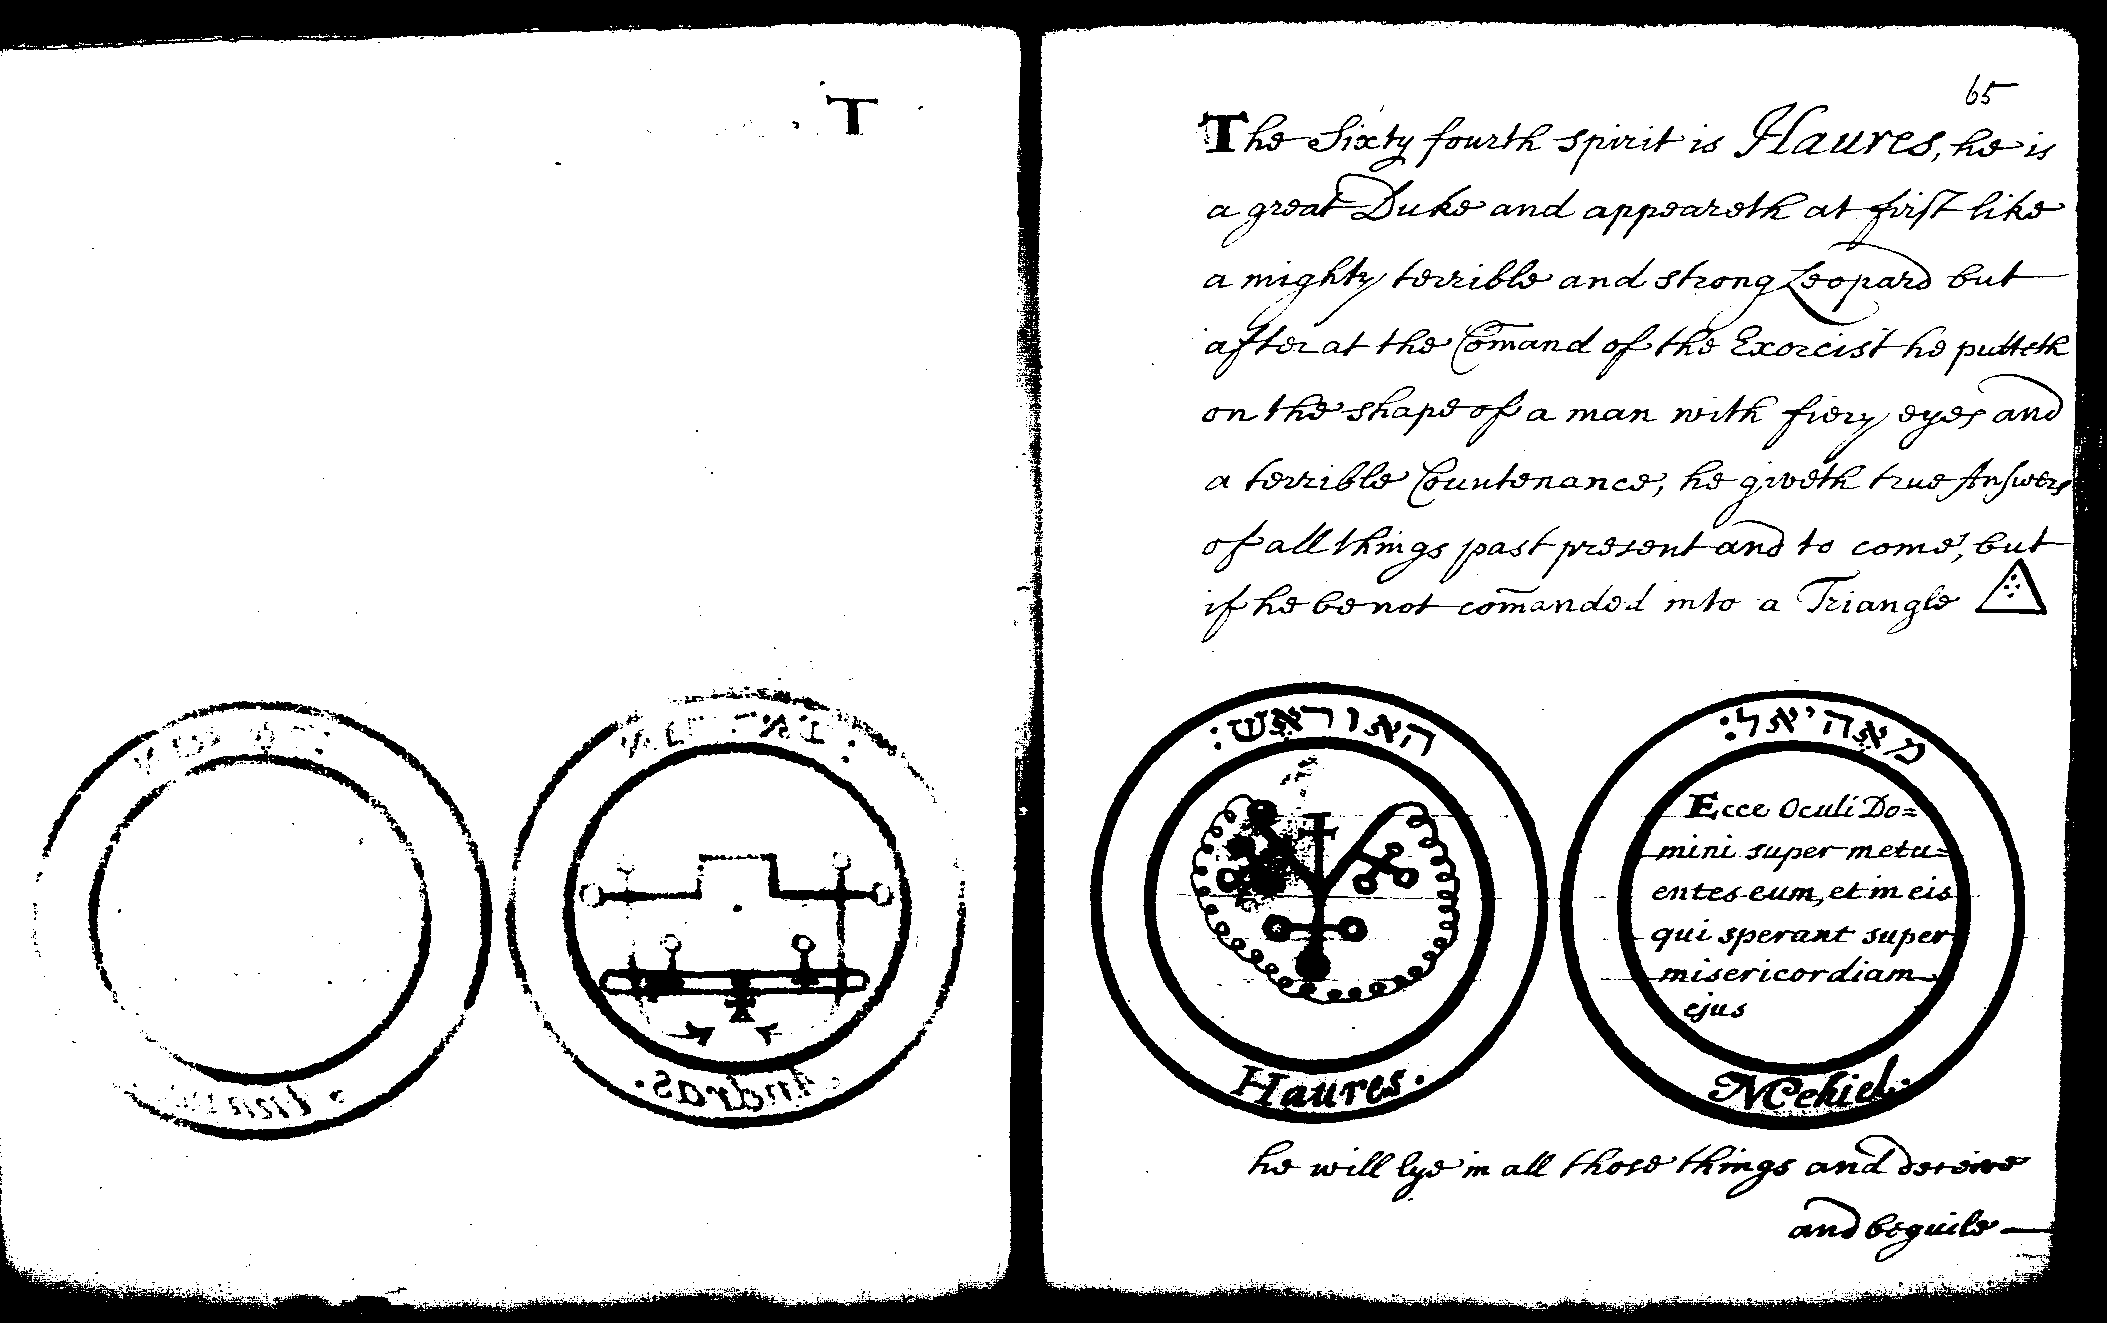 T
65
The Sixty fourth spirit is Haures, he is
a great Duke and appeareth at first like
a mighty terrible and strong Leopard but
after at the Com̄and of the Exorcist he putteth
on the shape of a man with fiery eyes and
a terrible Countenance, he giveth true Answers
of all things past present and to come, but
if he be not com̄anded into a Triangle
Andras.
האוראש:
Haures.
מאהיאל:
Ecce Oculi Do=
mini super metu=
entes eum, et in eis
qui sperant super
misericordiam
ejus
Mehiel:
he will lye in all those things and deceive
and beguile